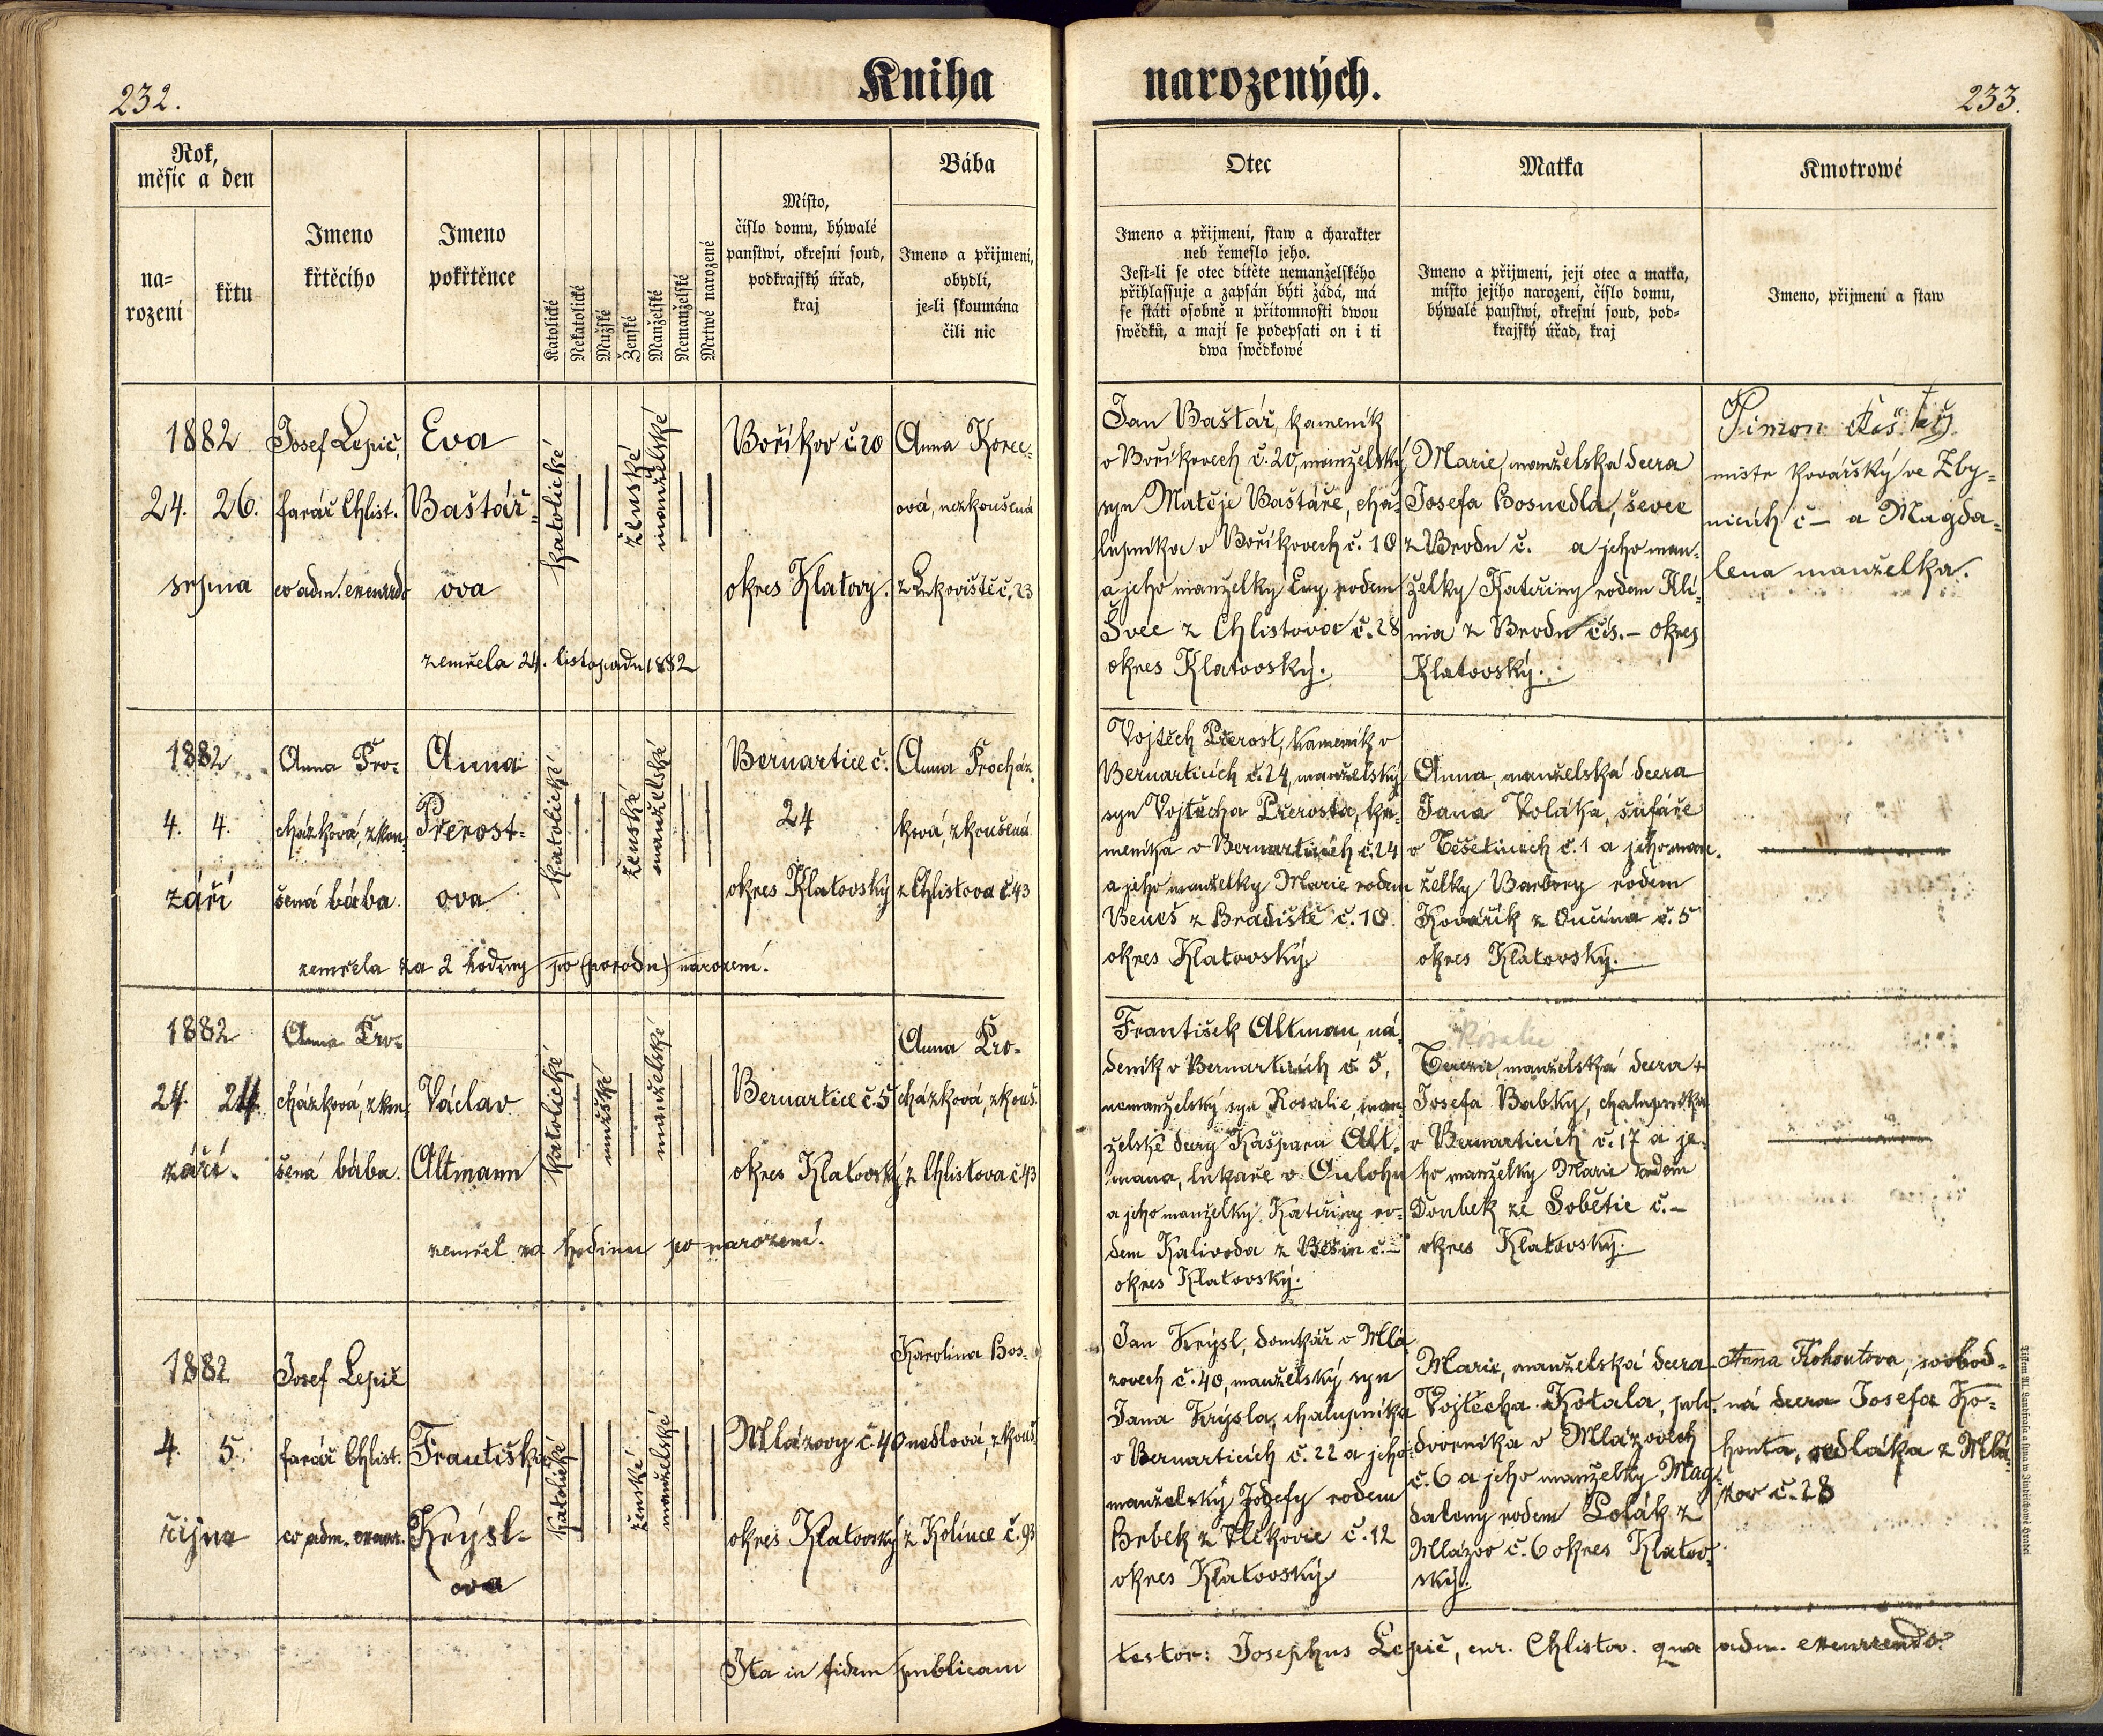 232.
Kniha
narozených.
233.
Rok,
měsíc a den
na=
rození
křtu
Jmeno
křtěcího
Jmeno
pokřtěnce
Katolické
Nekatolické
Mužské
Ženské
Manželské
Nemanželské
Mrtwě narozené
Místo,
číslo domu, býwalé
panstwí, okresní soud,
podkrajský úřad,
kraj
Bába
Jmeno a přijmení,
obydlí,
je=li skoumána
čili nic
Otec
Jmeno a přijmení, staw a charakter
neb řemeslo jeho.
Jest=li se otec dítěte nemanželského
přihlašsuje a zapsán býti žádá, má
se státi osobně u přítomnosti dwou
swědků, a mají se podepsati on i ti
dwa swědkowé
Matka
Jmeno a přijmení, její otec a matka,
místo jejího narození, číslo domu,
býwalé panstwí, okresní soud, pod=
krajský úřad, kraj
Kmotrowé
Jmeno, přijmení a staw
1882
24. 26.
srpna
Josef Lepič,
farář Chlist.
co adm. excurrdo
Eva
Baštář-
ova
katolické
ženské
manželské
zemřela 24. listopadu 1882
Boříkov č. 20
okres Klatovy.
Anna Korec-
ová, nezkoušená
z Lukoviště č. 23
Jan Baštář, kameník
v Boříkovech č. 20, manželský
syn Matěje Baštáře, cha-
lupníka v Boříkovech č. 10
a jeho manželky Evy rodem
Švec z Chlistova č. 28
okres Klatovský.
Marie manželská dcera
Josefa Bosnedla, ševce
z Brodu č. a jeho man-
želky Kateřiny rodem Klí-
ma z Brodu čís. – okres
Klatovský.
Šimon
mistr kovářský ve Zby-
nicích č – a Magda-
lena manželka.
1882
4. 4.
září
Anna Pro-
cházková, zkou-
šená bába.
Anna
Přerost-
ova
katolické
ženské
manželské
zemřela za 2 hodiny po (porodu) narození.
Bernartice č.
24
okres Klatovský
Anna Procház-
ková, zkoušená
z Chlistova č. 43
Vojtěch Přerost, kameník v
Bernarticích č. 24, manželský
syn Vojtěcha Přerosta, ka-
meníka v Bernarticích č. 24
a jeho manželky Marie rodem
Beneš z Hradiště č. 10
okres Klatovský.
Anna, manželská dcera
Jana Voláka, šafáře
v Těšetinech č. 1 a jeho man-
želky Barbory rodem
Kovářík z Oučína č. 5
okres Klatovský.
1882
24. 24.
září.
Anna Pro-
cházková, zkou-
šená bába.
Václav
Altmann
katolické
mužské
manželské
zemřel za hodinu po narození.
Bernartice č. 5
okres Klatovský
Anna Pro-
cházková, zkouš.
z Chlistova č 43
František Altman, ná-
deník v Bernarticích č. 5,
nemanželský syn Rosalie, man-
želské dcery Kašpara Alt-
mana, lukaře v Oulohu
a jeho manželky Kateřiny ro-
dem Kalivoda z Běšin č. –
okres Klatovský.
Rosalie
Terezie, manželská dcera +
Josefa Babky, chalupníka
v Bernarticích č. 17 a je-
ho manželky Marie rodem
Doubek ze Sobětic č. –
okres Klatovský.
1882
4. 5.
října
Josef Lepič
farář Chlist.
co adm. excurr.
Františka
Krýsl-
ova
katolické
ženské
manželské
Mlázovy č 40
okres Klatovský
Karolina Bos-
nedlová, zkouš.
z Kolince č. 93
Jan Krýsl, domkář v Mlá
zovech č. 40, manželský syn
Jana Krýsla, chalupníka
v Bernarticích č. 22 a jeho
manželky Josefy rodem
Brbek z Vlčkovic č. 12
okres Klatovský.
Marie, manželská dcera
Vojtěcha Kotala, polo-
dvorníka v Mlázovech
č. 6 a jeho manželky Mag-
daleny rodem Polák z
Mlázov č. 6 okres Klatov-
ský.
Anna Kohoutova, svobod-
ná dcera Josefa Ko-
houta, sedláka z Mlá-
zov č. 28
Ita in fidem publicam
testor: Josephus Lepič, cur. Chlistov. qua adm. excurrendo.